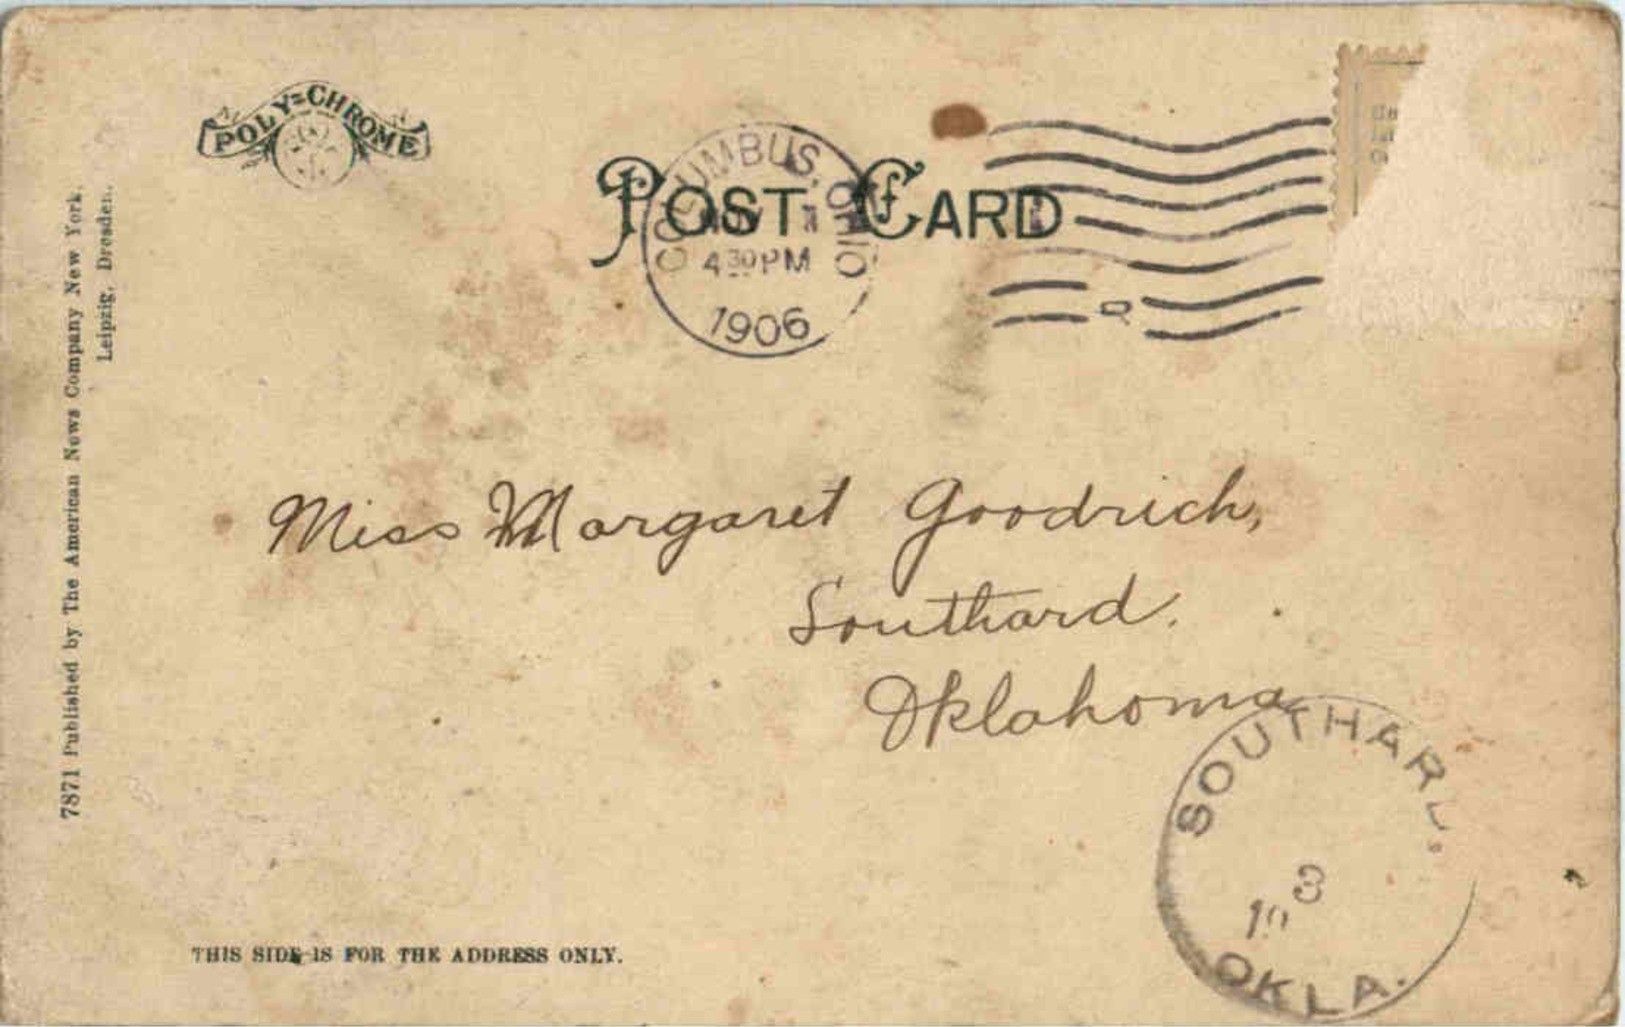 POLY=CHROME
POST CARD
COLUMBUS, OHIO
NOV
4 30 PM
1906
7871 Published by The American News Company New York.
Leipzig, Dresden.
Miss Margaret Goodrich,
Southard.
Oklahoma
SOUTHARD
3
OKLA.
THIS SIDE IS FOR THE ADDRESS ONLY.